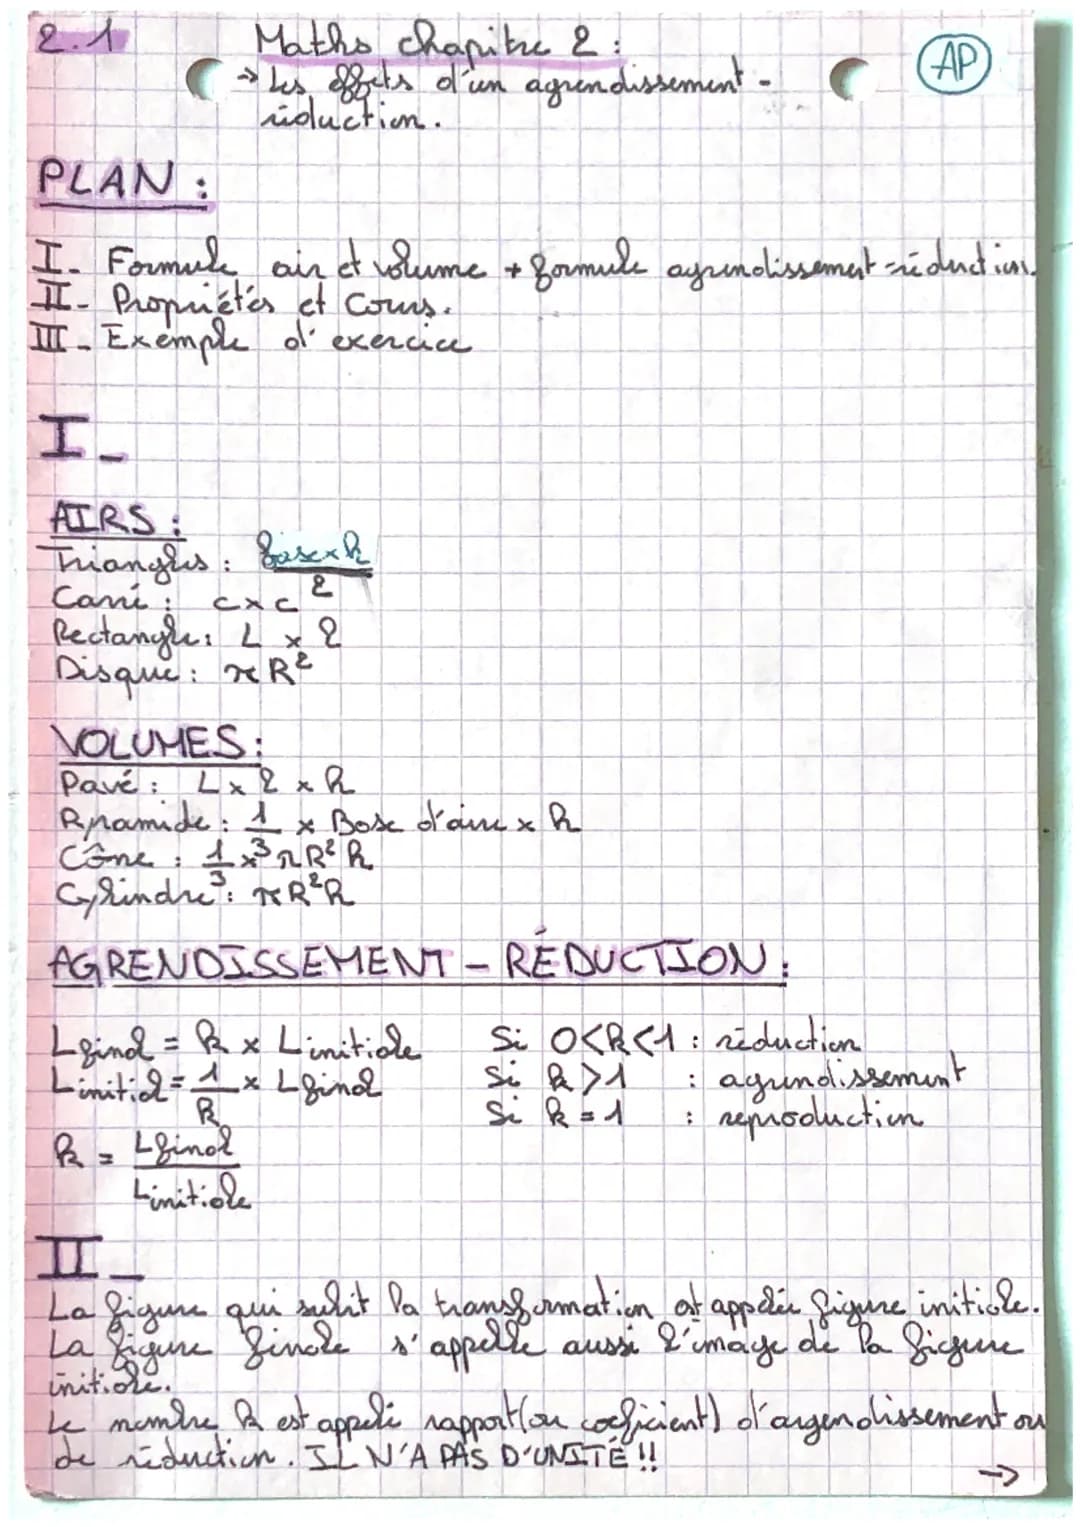 2.1
Maths chapitre 2 :
AP
→ Les effets d'un agrendissement -
réduction.
PLAN :
I- Formule air et volume + formule agrendissement-réduction.
II- Propriétés et Cours.
III- Exemple d'exercice
I-
AIRS :
Triangles : base×h
2
Carré : c×c
Rectangle : L × l
Disque : πR²
VOLUMES :
Pavé : L × l × h
Pyramide : 1 × Base d'aire × h
3
Cône : 1 × πR²h
3
Cylindre : πR²h
AGRENDISSEMENT - RÉDUCTION :
Lfinal = k × Linitiale
Si 0<k<1 : réduction
Linitial = 1 × Lfinal
k
Si k>1 : agrendissement
Si k=1 : reproduction
k = Lfinal
Linitiale
II-
La figure qui subit la transformation est appelée figure initiale.
La figure finale s'appelle aussi l'image de la figure
initiale.
Le nombre k est appelé rapport (ou coeficient) d'argendissement ou
de réduction. IL N'A PAS D'UNITÉ !!
→